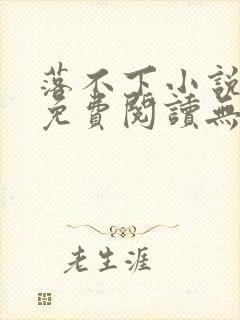 落不下小說
免費閱讀無
老生涯